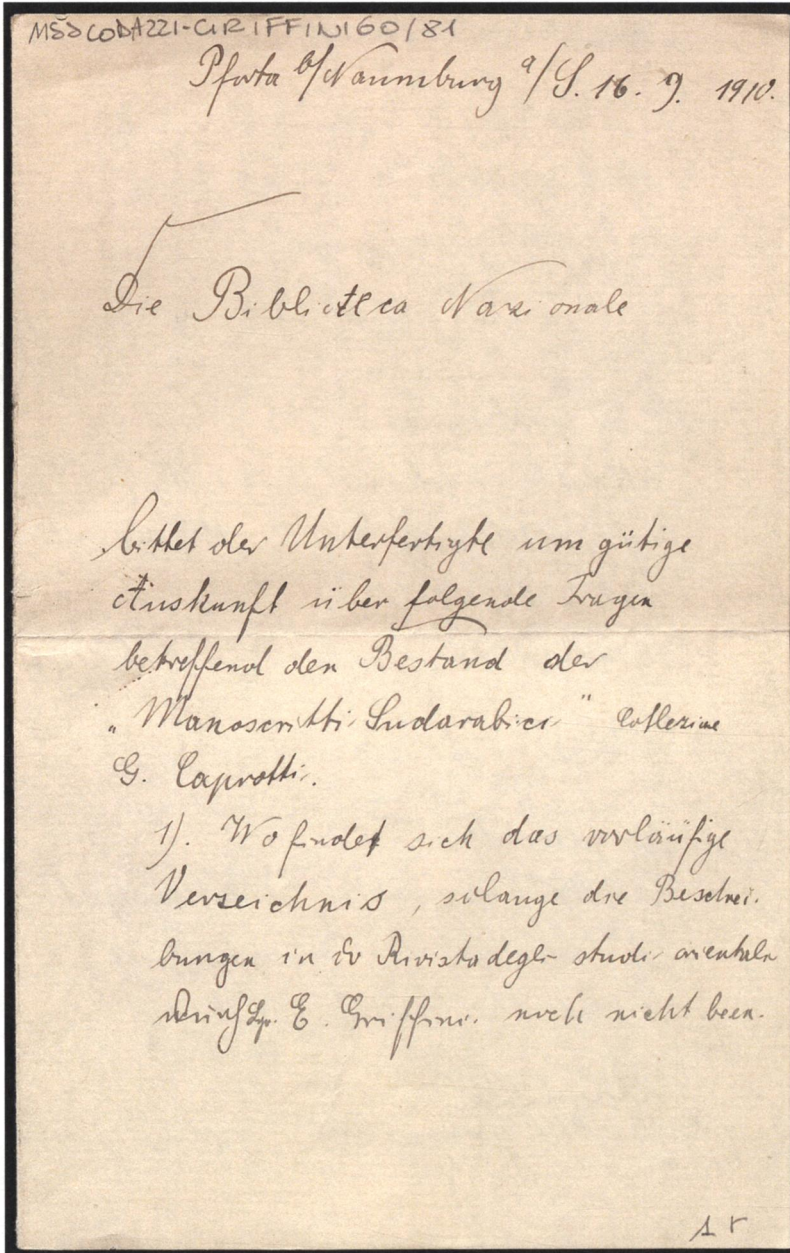 MSS CODAZZI-GRIFFINI 60/81
Pforta b/Naumburg a/S. 16. 9. 1910.
Die Biblioteca Nazionale
bittet der Unterfertigte um gütige
Auskunft über folgende Fragen
betreffend den Bestand der
„Manoscritti Sudarabici" Collezione
G. Caprotti.
1). Wo findet sich das vorläufige
Verzeichnis, solange die Beschrei-
bungen in der Rivista degli studi orientali
durch E. Griffini noch nicht been-
1 r